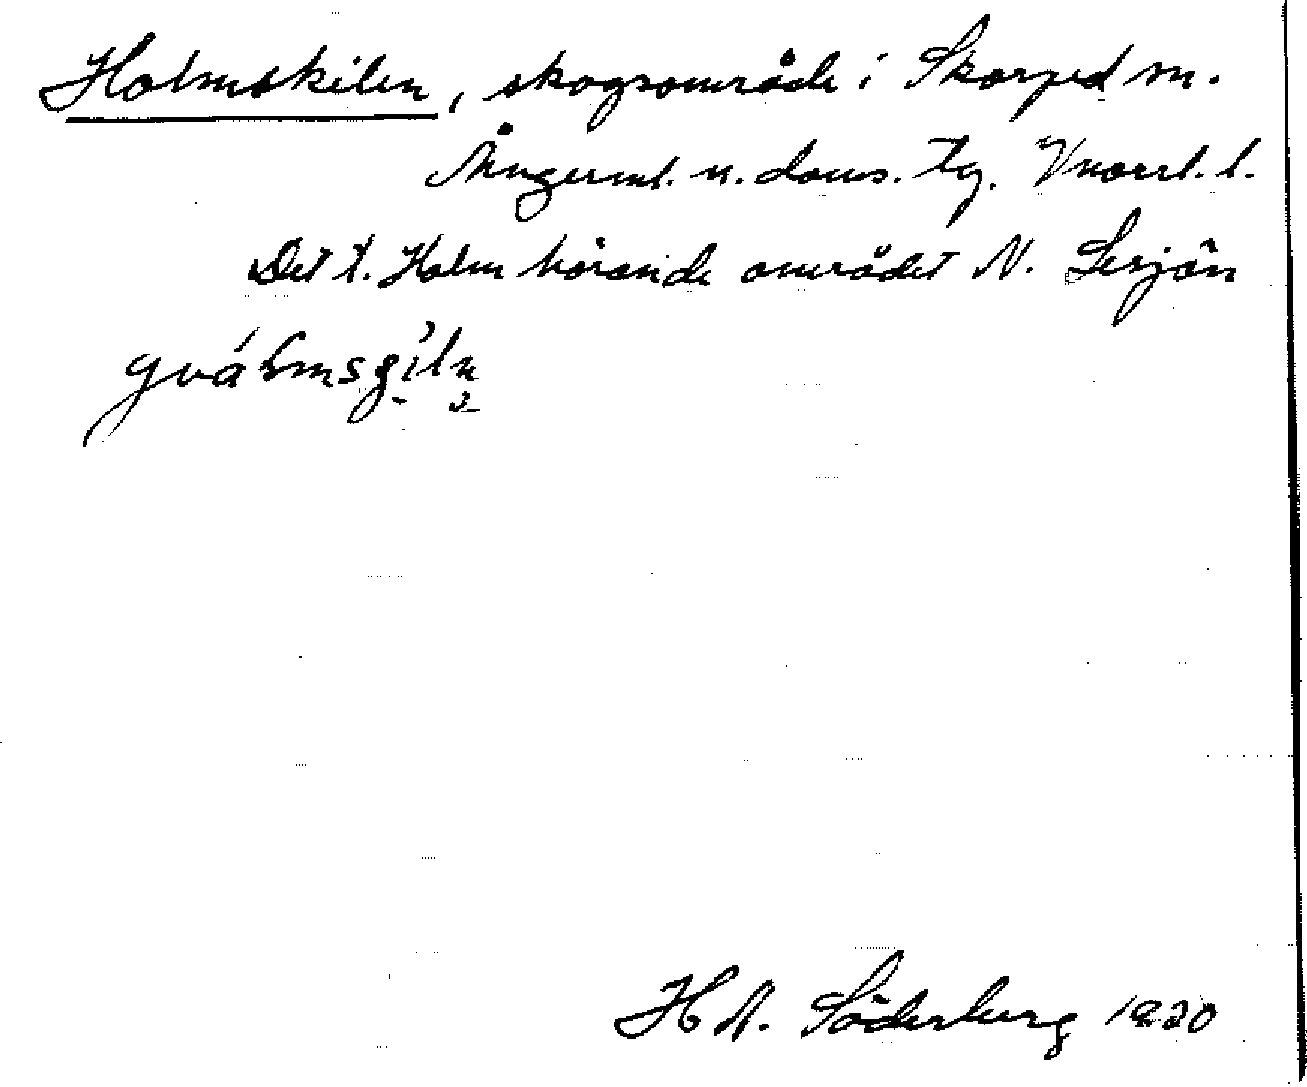 Holmskilen, skogsområde i Skorped sn.
Ångerml. n. doms. tg. Vnorrl. l.
Det t. Holm hörande området N. Lesjön
H N. Söderberg 1920